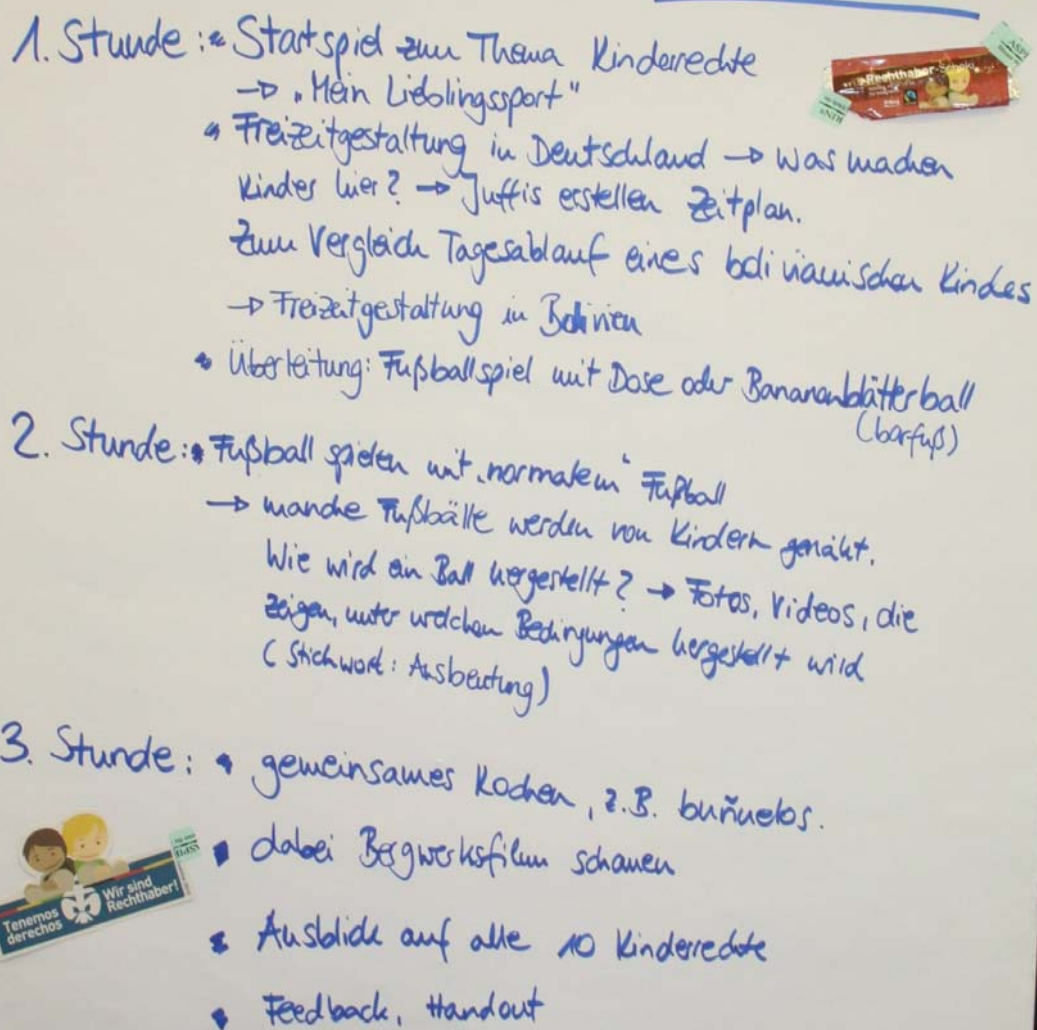 1. Stunde: • Startspiel zum Thema Kinderrechte
→ "Mein Lieblingssport"
• Freizeitgestaltung in Deutschland → was machen
Kinder hier? → Juffis erstellen Zeitplan.
Zum Vergleich Tagesablauf eines bolivianischen Kindes
→ Freizeitgestaltung in Bolivien
• Überleitung: Fußballspiel mit Dose oder Bananenblätterball
(barfuß)
2. Stunde: • Fußball spielen mit "normalem" Fußball
→ manche Fußbälle werden von Kindern genäht.
Wie wird ein Ball hergestellt? → Fotos, Videos, die
zeigen, unter welchen Bedingungen hergestellt wird
(Stichwort: Ausbeutung)
3. Stunde: • gemeinsames Kochen, z.B. buñuelos.
• dabei Bergwerksfilm schauen
• Ausblick auf alle 10 Kinderrechte
• Feedback, Handout
Rechthaber-Schoki
Tenemos derechos
Wir sind Rechthaber!